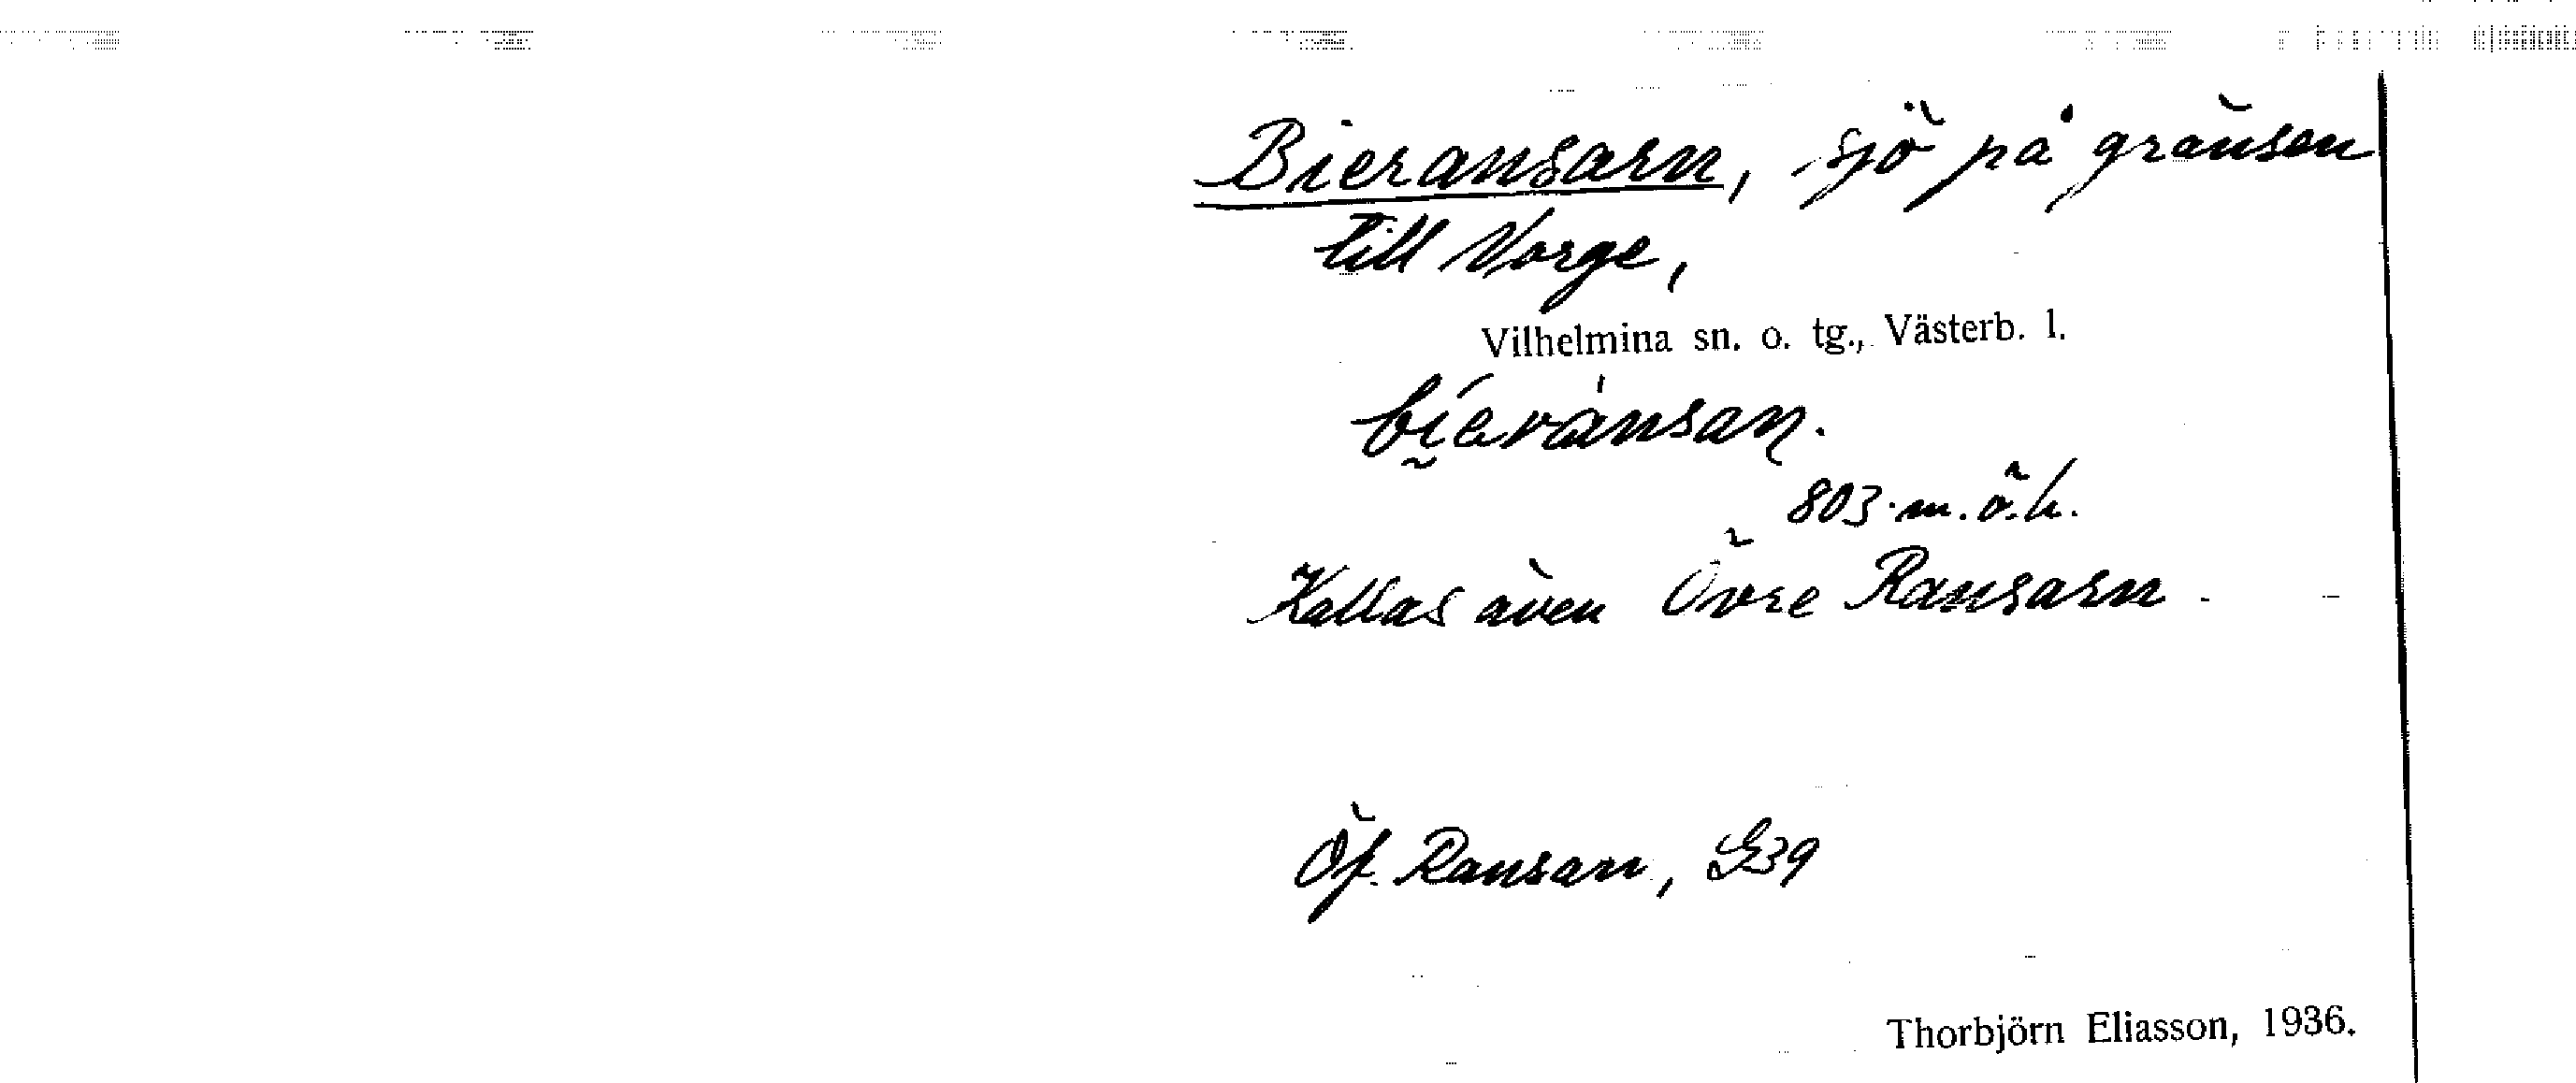 Bieransarn, sjö på gränsen
till Norge,
Vilhelmina sn. o. tg., Västerb. l.
803 m. ö. h.
Kallas även Övre Ransarn.
Öf. Ransarn, G39
Thorbjörn Eliasson, 1936.